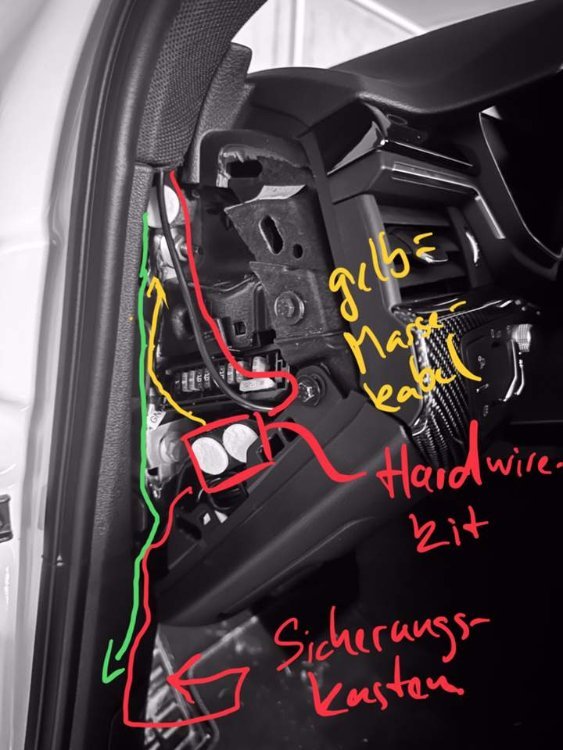 gelb =
Masse-
kabel
Hardwire-
kit
Sicherungs-
kasten